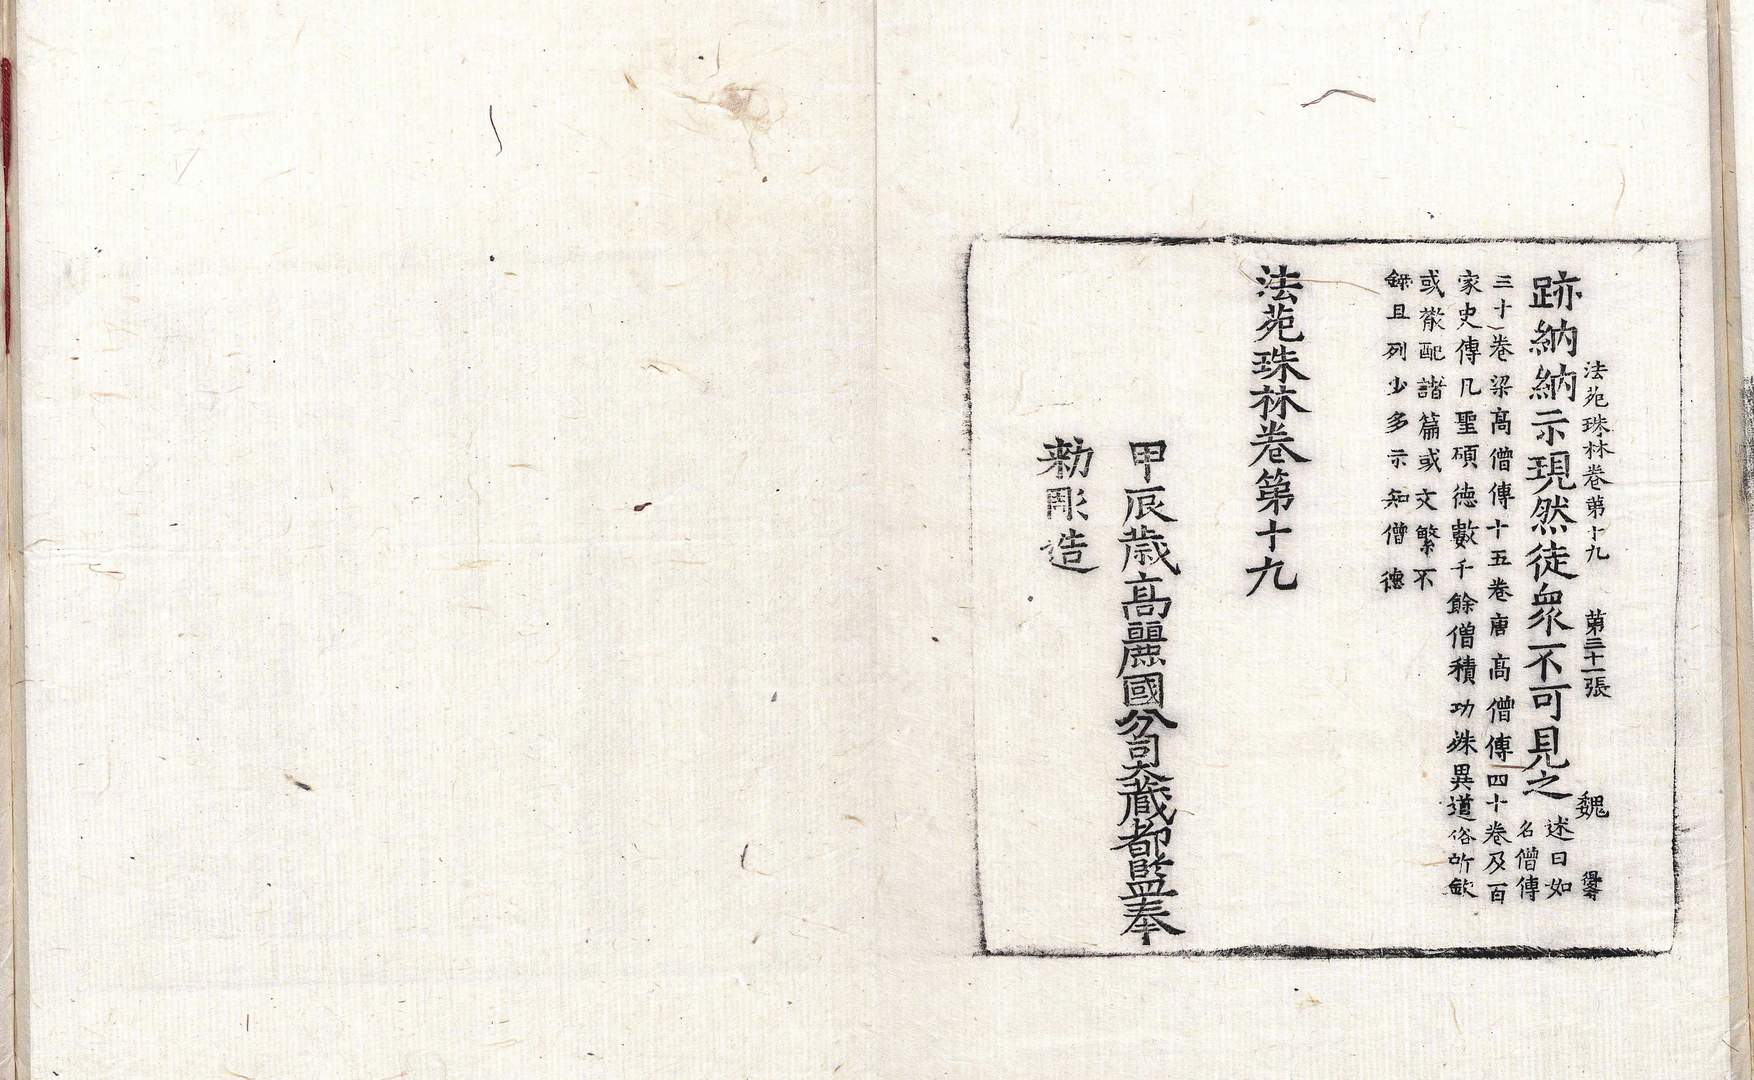 法苑珠林卷第十九　第三十一張　魏
跡納納示現然徒衆不可見之述曰如
名僧傳
三十卷梁高僧傳十五卷唐高僧傳四十卷及百
家史傳凡聖碩德數千餘僧積功殊異道俗所欽
或散配諸篇或文繁不
錄且列少多示知僧德
法苑珠林卷第十九
甲辰歲高麗國分司大藏都監奉
勅彫造